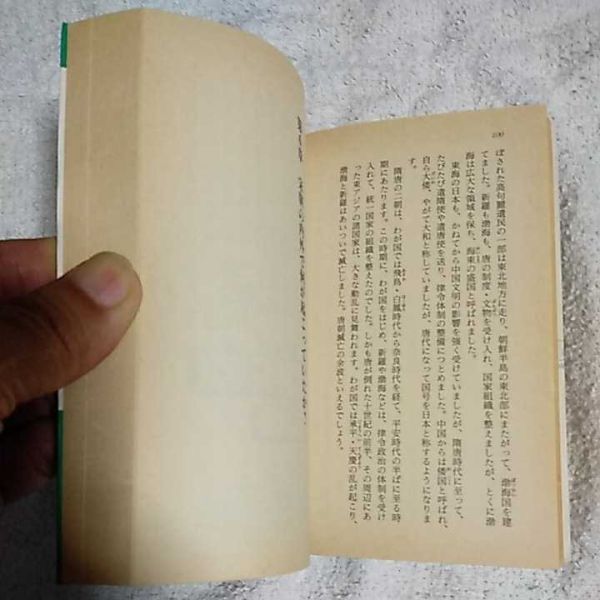 200
ぼされた高句麗遺民の一部は東北地方に走り、朝鮮半島の東北部にまたがって、渤海国を建
てました。新羅も渤海も、唐の制度・文物を受け入れ、国家組織を整えましたが、とくに渤
海は広大な領域を保ち、海東の盛国と呼ばれました。
東海の日本も、かねてから中国文明の影響を強く受けていましたが、隋唐時代に至って、
たびたび遣隋使や遣唐使を送り、律令体制の整備につとめました。中国からは倭国と呼ばれ、
自ら大倭、やがて大和と称していましたが、唐代になって国号を日本と称するようになりま
す。
隋唐の二朝は、わが国では飛鳥・白鳳時代から奈良時代を経て、平安時代の半ばに至る時
期にあたります。この時期に、わが国をはじめ、新羅や渤海などは、律令政治の体制を受け
入れて、統一国家の組織を整えたのでした。しかも唐が倒れた十世紀の前半、その周辺にあ
った東アジアの諸国家は、大きな動乱に見舞われます。わが国では承平・天慶の乱が起こり、
渤海と新羅はあいついで滅亡しました。唐朝滅亡の余波といえるでしょう。